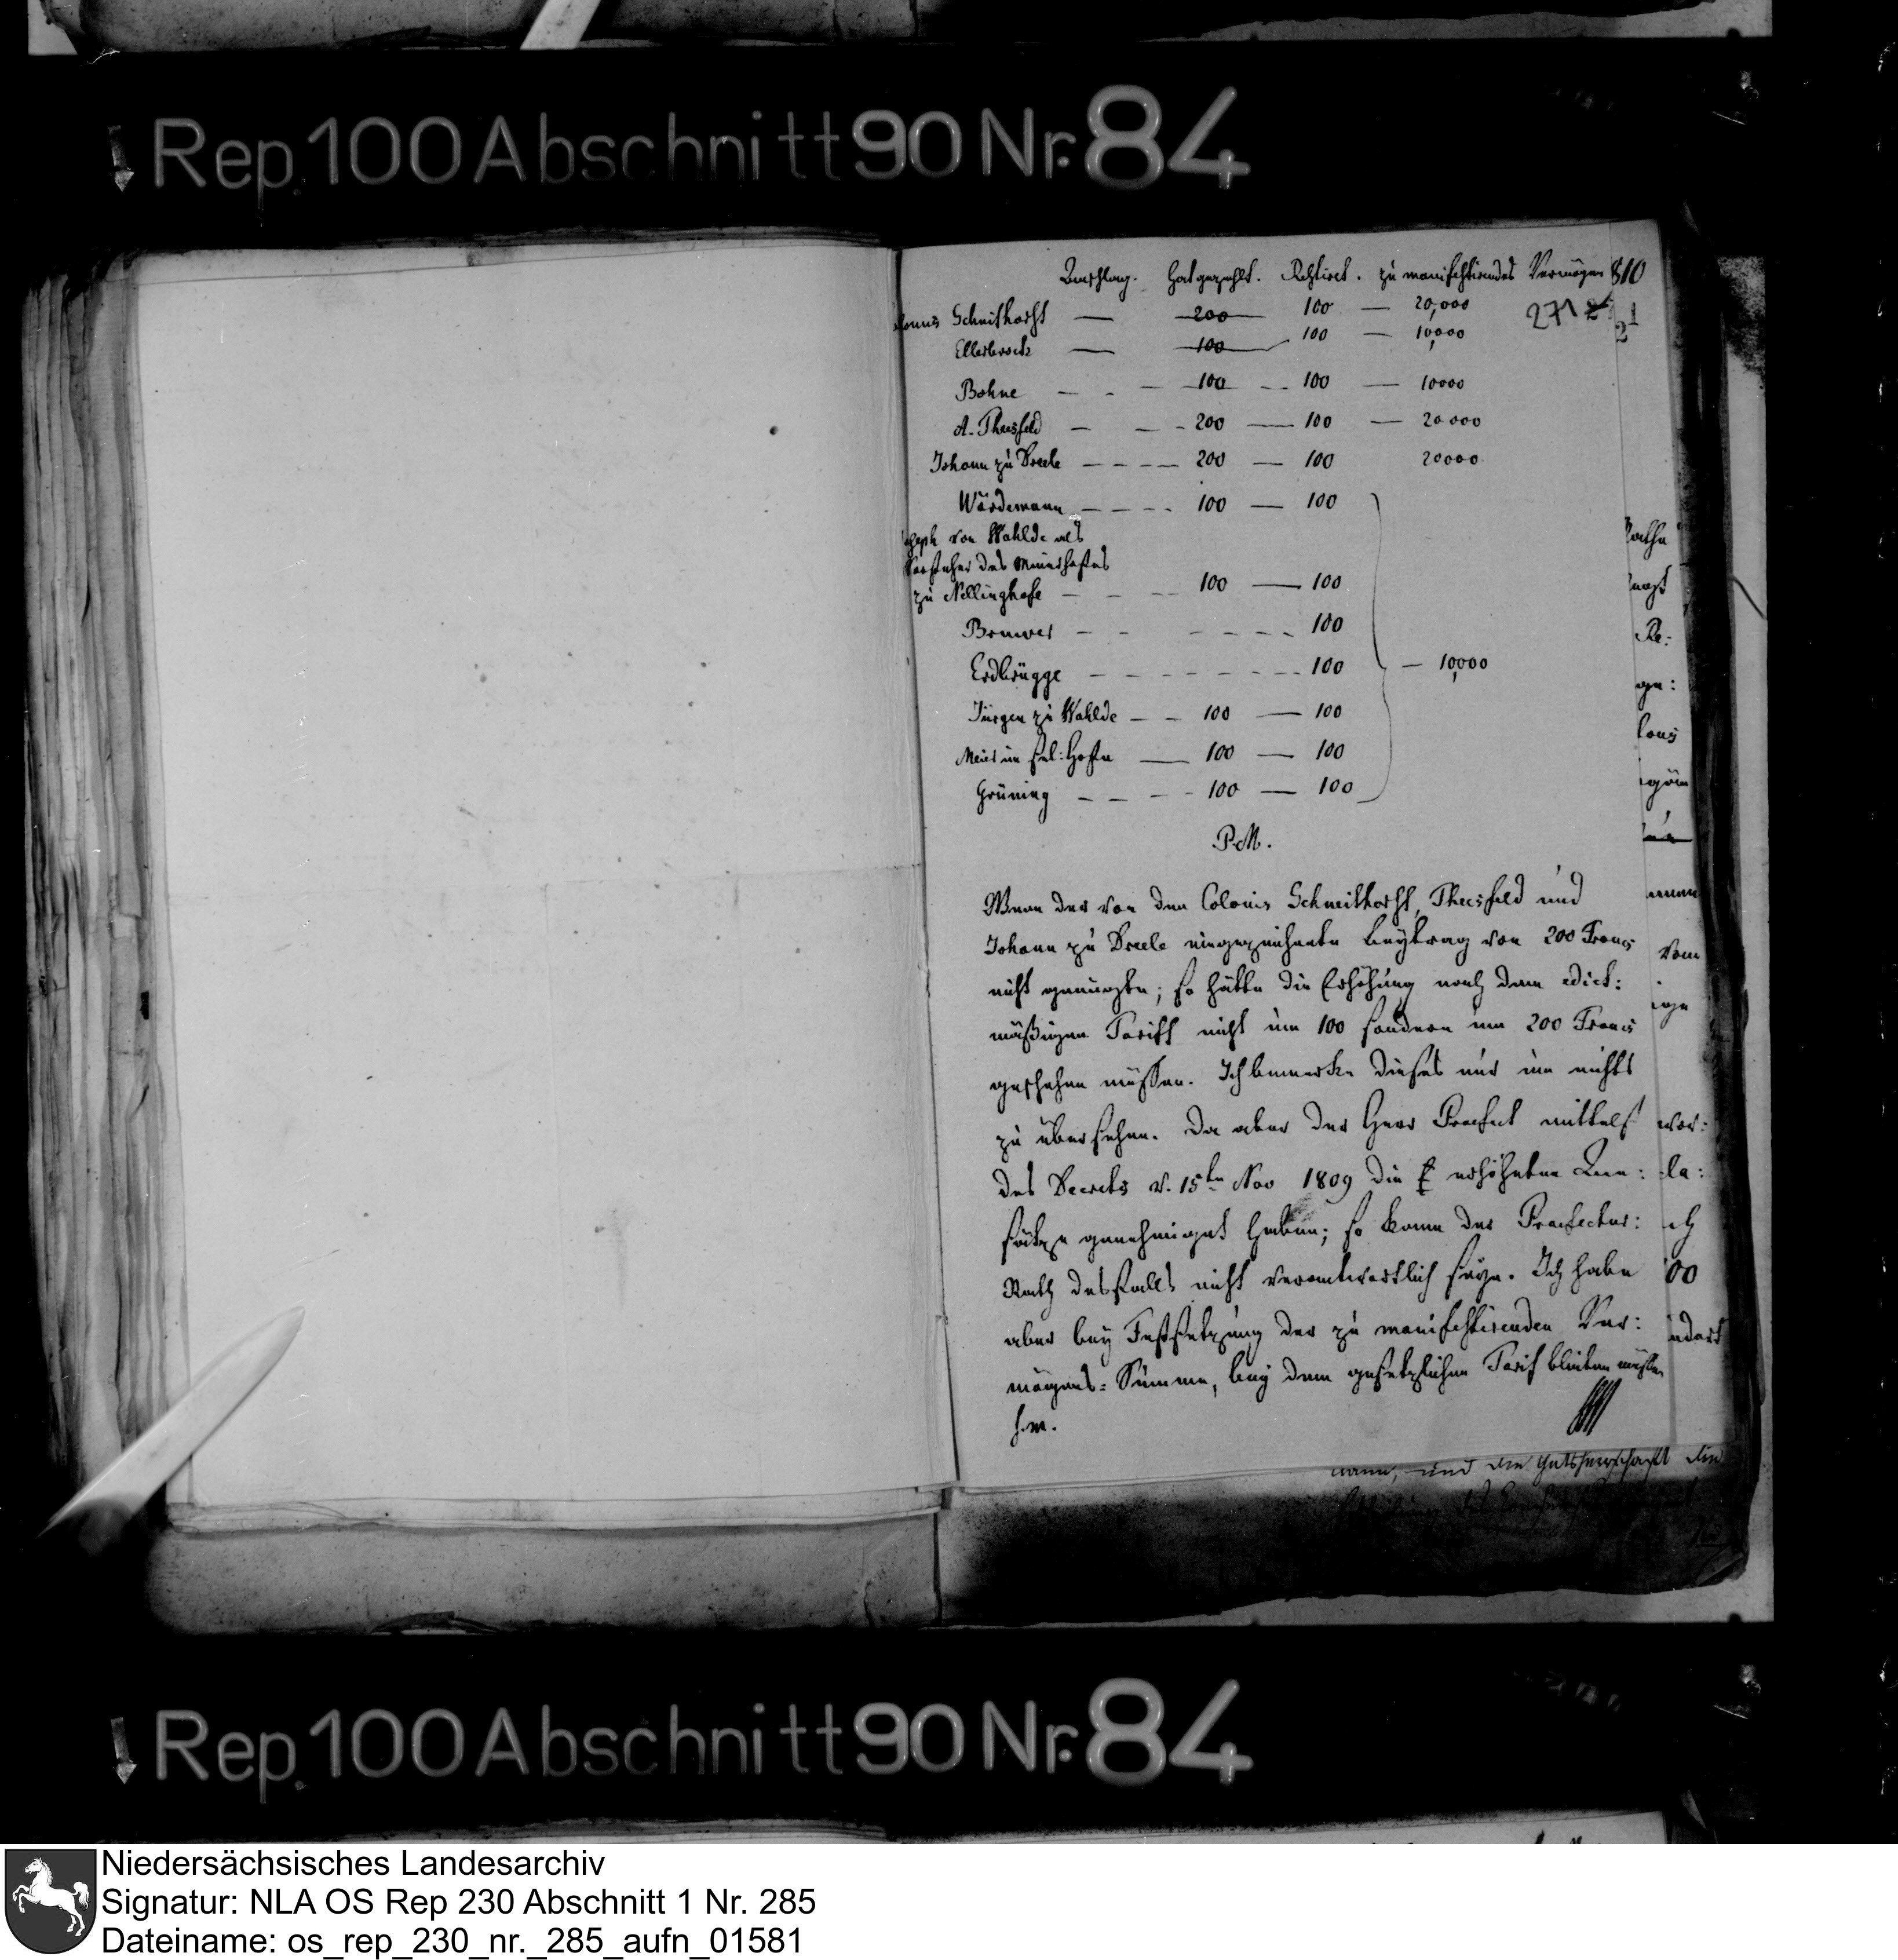 Rep.100 Abschnitt 90 Nr. 84
Anschlag. hat gezahlt. Restiret. zu manifestirendes Vermögen 810
Schneithorst — 200 100 — 20,000 271
Ellerbrock — 100 100 — 10,000 21
Bohne — - — 100 — 100 — 10000
A. Theesfeld — — - 200 — 100 — 20000
Johann zu Drele - - - — 200 — 100 20000
Wördemann - - - - 100 — 100
Joseph von Wahlde als
Vorsteher des Meierhofes
zu Nellinghofe - - - 100 — 100
Brouwer - - - - - - 100
Erdbrügge - - - - - - 100 — 10,000
Jürgen zu Wahlde - - 100 — 100
Meier im fel: Hofe — 100 — 100
Grüning - - - - 100 — 100
P.M.
Wenn der von den Colonis Schneithorst, Theesfeld und
Johann zu Drele eingezeichnete Beytrag von 200 Francs
nicht genügte; so hätte die Erhöhung nach dem edict:
mäßigen Tariff nicht um 100 sondern um 200 Francs
geschehen müssen. Ich bemerke dieses nur um nichts
zu übersehen. Da aber der Herr Praefect mittelst
des Decrets v. 15ten Nov 1809 die erhöheten An:
sätze genehmiget haben; so kann der Praefectur:
Rath desfalls nicht verantwortlich seyn. Ich habe
aber bey Festsetzung der zu manifestirenden Ver:
mögens: Summe, bey dem gesetzlichen Tarif bleiben müssen
s.m.
und die Gutsherrschaft
Rep.100 Abschnitt 90 Nr. 84
Niedersächsisches Landesarchiv
Signatur: NLA OS Rep 230 Abschnitt 1 Nr. 285
Dateiname: os_rep_230_nr._285_aufn_01581